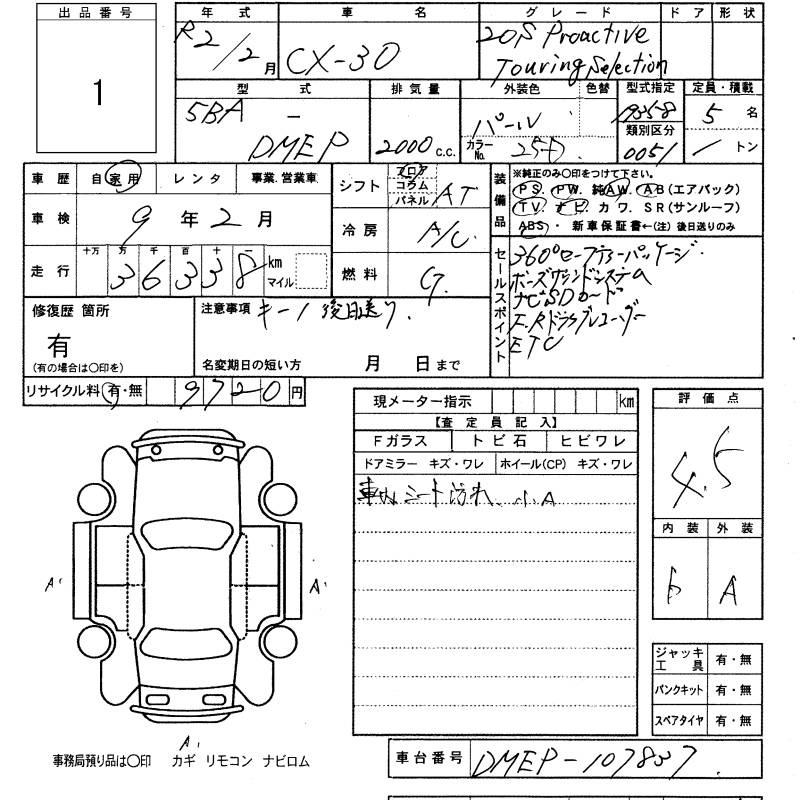 出品番号
1
年式 車名 グレード ドア 形状
R2/2月 CX-30 20S Proactive
Touring Selection
型式 排気量 外装色 色替 型式指定 定員・積載
5BA - DMEP 2000 c.c. パール 19358 5 名
カラーNo. 25D 類別区分 0051 / トン
車歴 自家用 レンタ 事業.営業車
車検 9年2月
走行 十万 万 千 百 十 一
3 6 3 3 8 km マイル
シフト フロア コラム パネル AT
冷房 A/C
燃料 G
装備品
※純正のみ〇印をつけて下さい。
PS. PW. 純AW. AB(エアバック)
TV. ナビ. カワ. SR(サンルーフ)
ABS. 新車保証書←(注) 後日送りのみ
セールスポイント
360°セーフティーパッケージ
ボーズサウンドシステム
ナビSDカード
F.Rドラブレコーダー
ETC
修復歴 箇所
有
(有の場合は〇印を)
注意事項 キー1 後日送り.
名変期日の短い方 月 日まで
リサイクル料 有・無 9720円
現メーター指示 km
【査定員記入】
Fガラス トビ石 ヒビワレ
ドアミラー キズ・ワレ ホイール(CP) キズ・ワレ
車内シート汚れ、小A
評価点
4.5
内装 外装
b A
A1
A1
A1
ジャッキ工具 有・無
パンクキット 有・無
スペアタイヤ 有・無
事務局預り品は〇印 カギ リモコン ナビロム
車台番号 DMEP-107837